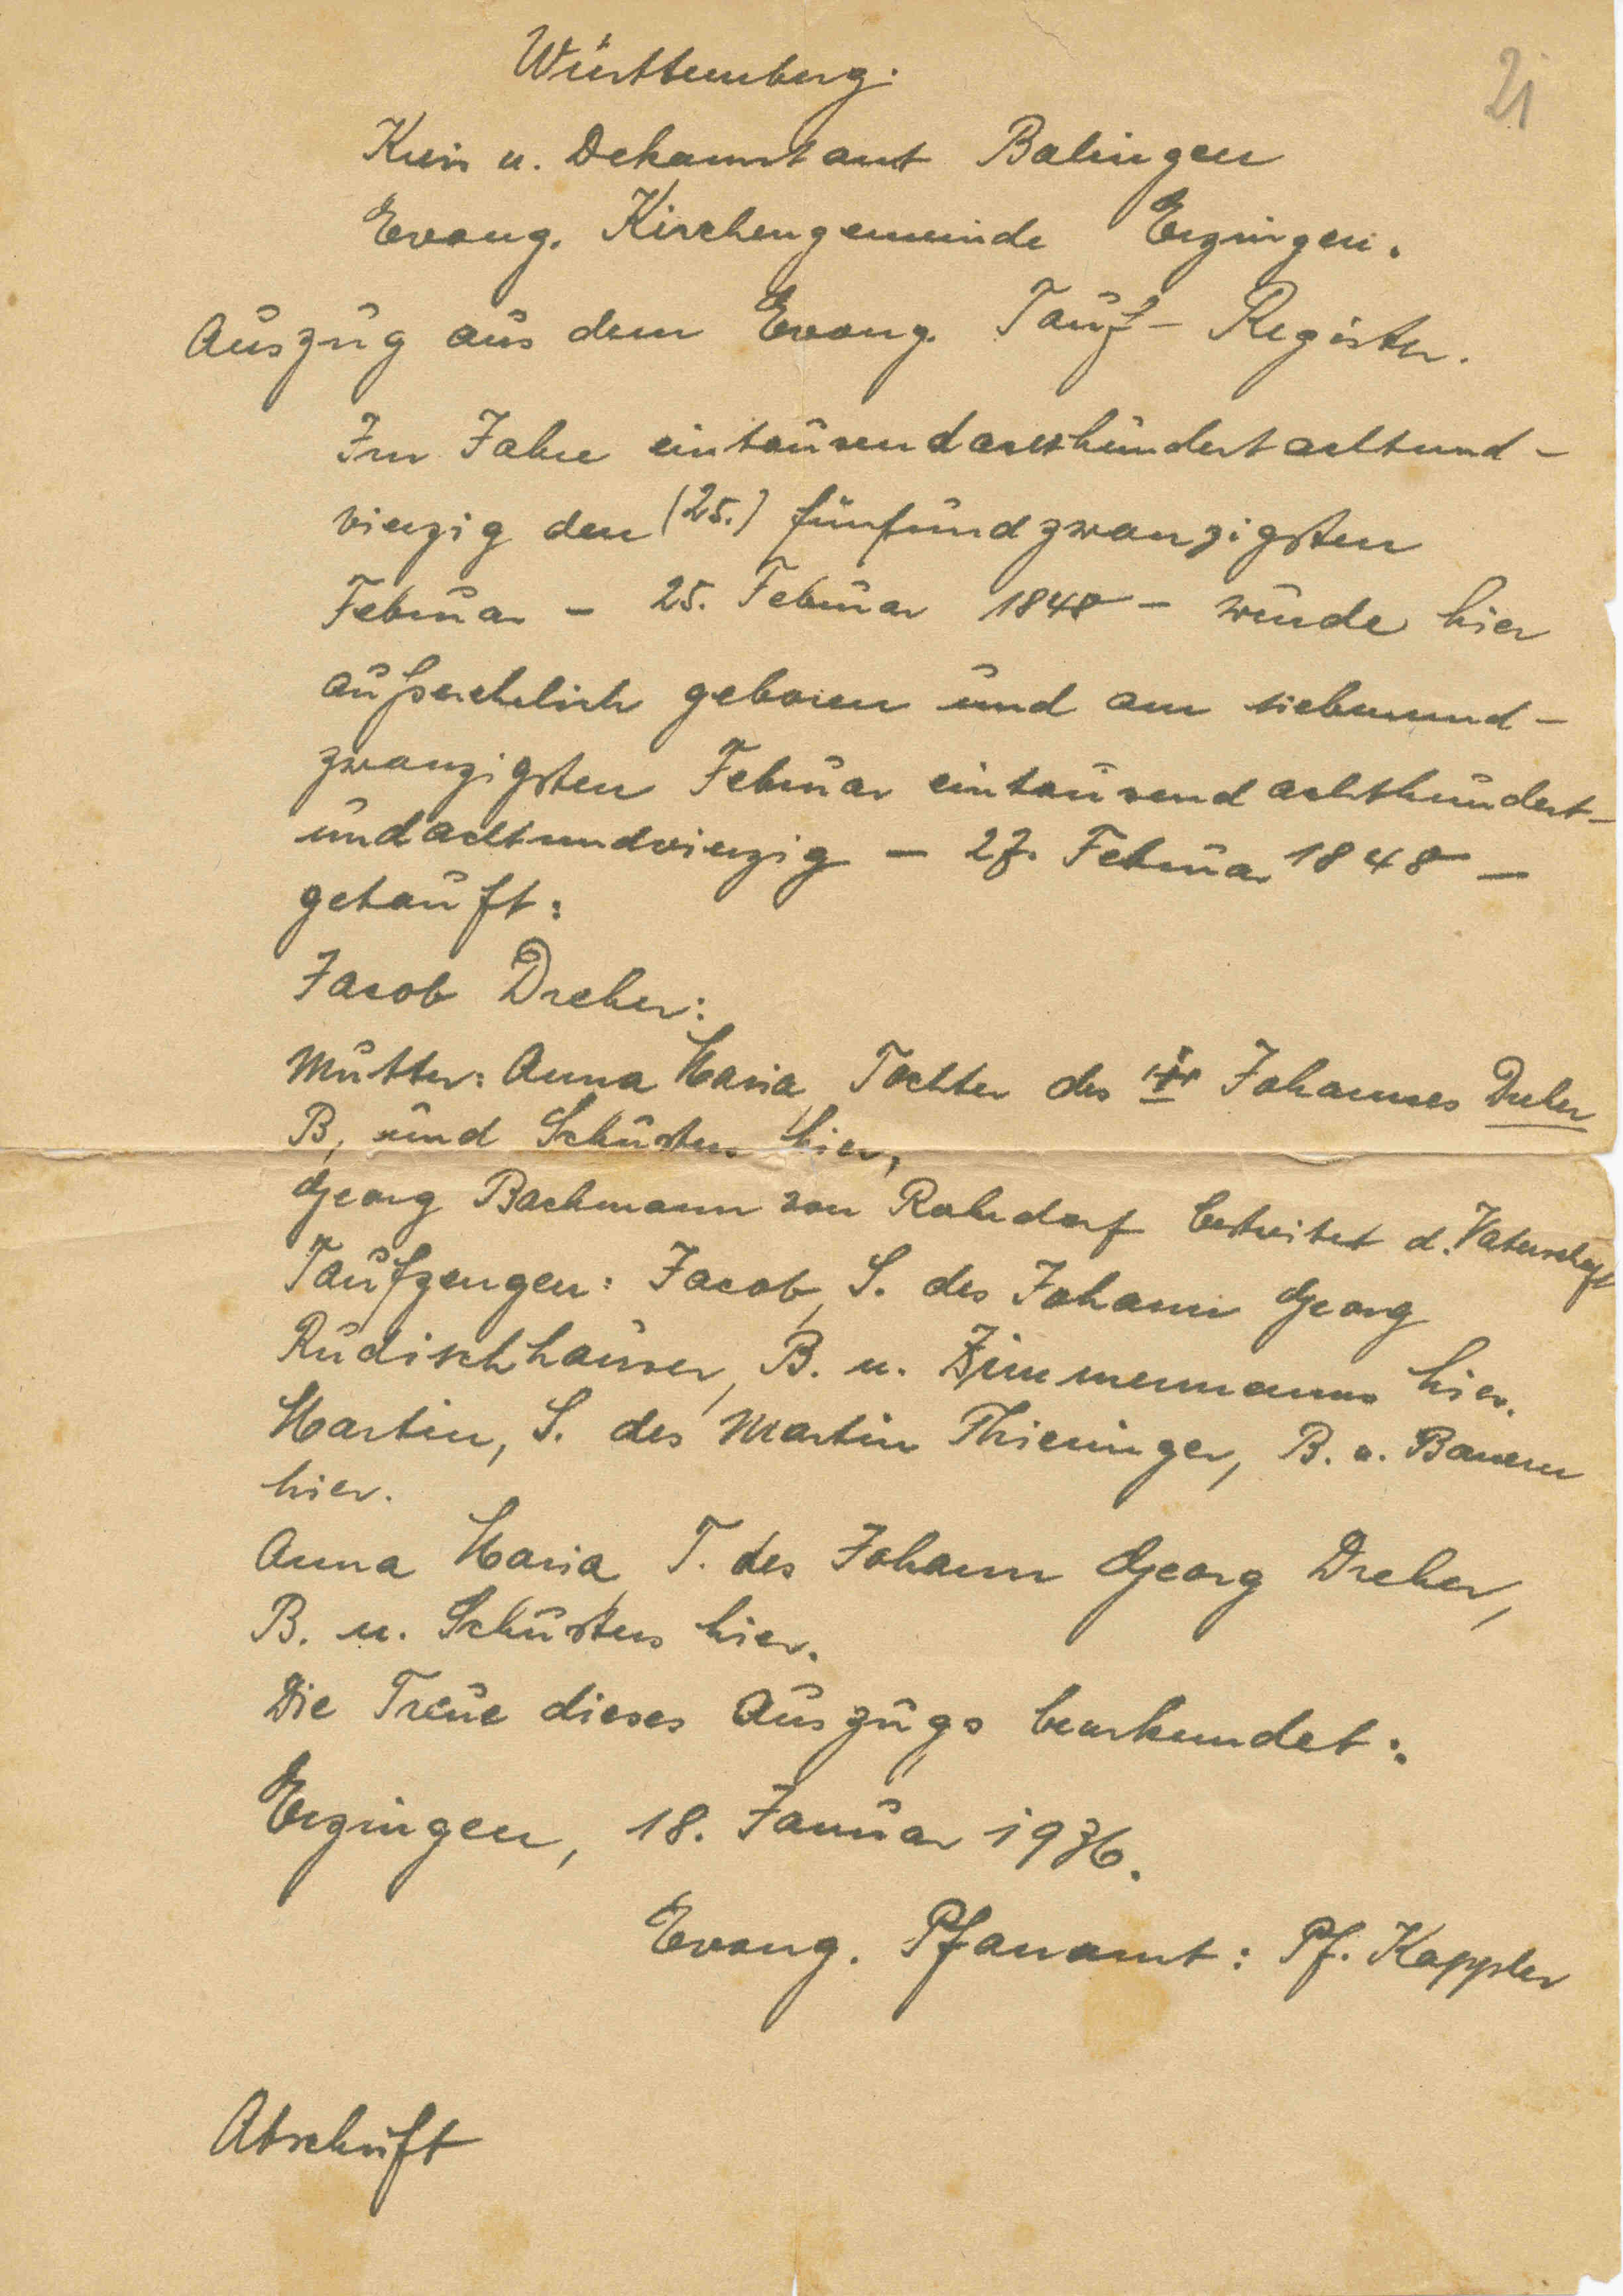 21
Württemberg.
Kreis u. Dekanatamt Balingen
Evang. Kirchengemeinde Erzingen.
Auszug aus dem Evang. Tauf-Register.
Im Jahre eintausendachthundertachtund-
vierzig den (25.) fünfundzwanzigsten
Februar - 25. Februar 1848 - wurde hier
außerehelich geboren und am siebenund-
zwanzigsten Februar eintausendachthundert-
undachtundvierzig - 27. Februar 1848 -
getauft:
Jacob Dreher:
Mutter: Anna Maria, Tochter des Johannes Dreher
B, und Schusters hier,
Georg Bachmann von Rohrdorf bestreitet d. Vaterschaft
Taufzeugen: Jacob, S. des Johann Georg
Rudischhauser, B. u. Zimmermanns hier.
Martin, S. des Martin Thieringer, B. u. Bauern
hier.
Anna Maria, T. des Johann Georg Dreher,
B. u. Schusters hier.
Die Treue dieses Auszugs beurkundet:
Erzingen, 18. Januar 1936.
Evang. Pfarramt: Pf. Kappler
Abschrift